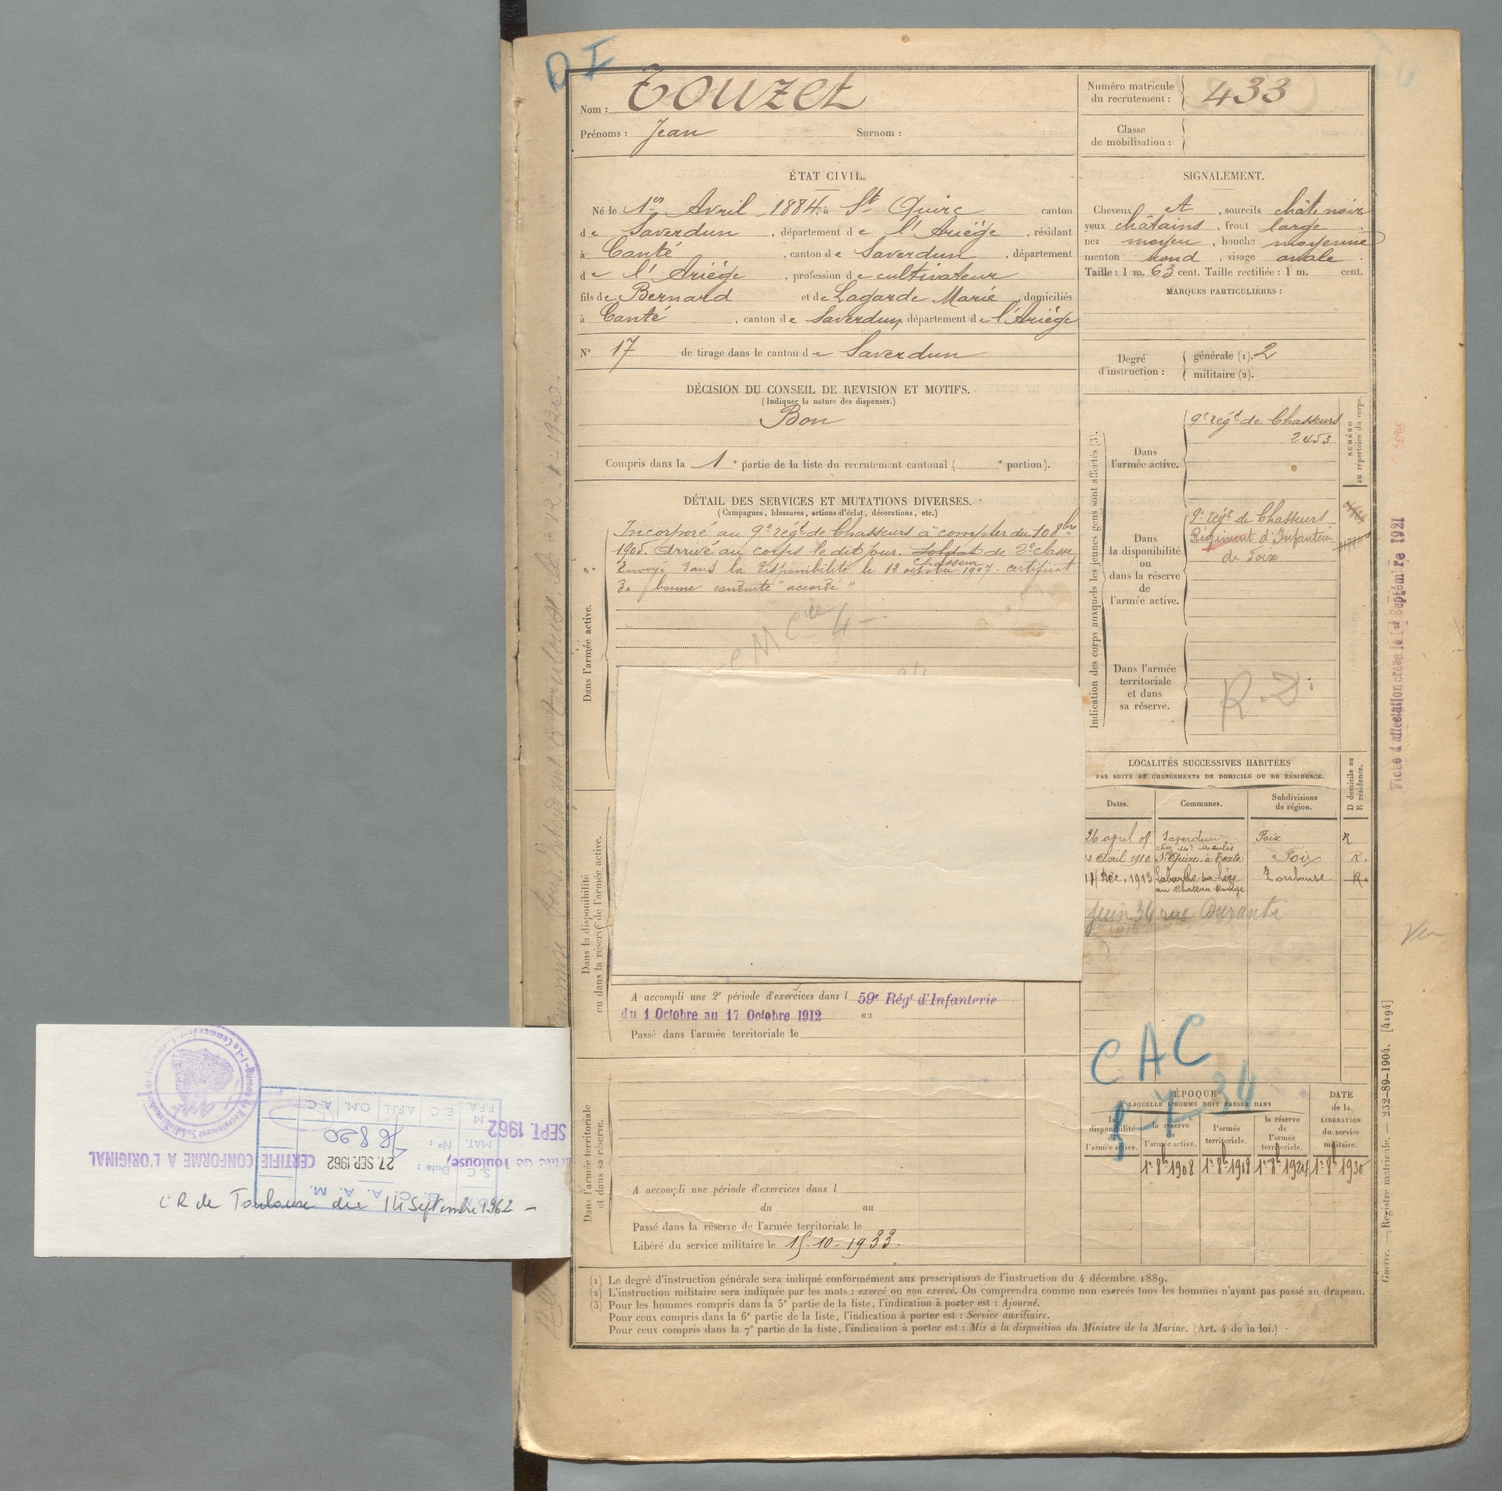 D I
Nom : Touzet
Prénoms : Jean Surnom :
Numéro matricule
du recrutement : 433
Classe
de mobilisation :
ÉTAT CIVIL.
Né le 1er Avril 1884, à St Quirc canton
de Saverdun, département de l'Ariège, résidant
à Canté, canton de Saverdun, département
de l'Ariège, profession de cultivateur
fils de Bernard et de Lagarde Marie, domiciliés
à Canté, canton de Saverdun, département de l'Ariège
N° 17 de tirage dans le canton de Saverdun
SIGNALEMENT.
Cheveux et, sourcils chât. noir
yeux châtains, front large
nez moyen, bouche moyenne
menton rond, visage ovale.
Taille : 1 m. 63 cent. Taille rectifiée : 1 m. cent.
MARQUES PARTICULIÈRES :
Degré
d'instruction :
générale (1). 2
militaire (2).
DÉCISION DU CONSEIL DE REVISION ET MOTIFS.
(Indiquer la nature des dispenses.)
Bon
Compris dans la 1e partie de la liste du recrutement cantonal ( e portion).
DÉTAIL DES SERVICES ET MUTATIONS DIVERSES.
(Campagnes, blessures, actions d'éclat, décorations, etc.)
Dans l'armée active.
Incorporé au 9e régt de Chasseurs à compter du 10 8bre
1905. Arrivé au corps le dit jour. Soldat de 2e classe
chasseur
Envoyé dans la disponibilité le 12 octobre 1907. certificat
de bonne conduite "accordé"
Indication des corps auxquels les jeunes gens sont affectés (3).
Dans
l'armée active.
9e régt de Chasseurs
2453
NUMÉRO
au répertoire du corps.
Dans
la disponibilité
ou
dans la réserve
de
l'armée active.
9e régt de Chasseurs
Régiment d'Infanterie
de Foix
Dans l'armée
territoriale
et dans
sa réserve.
R.D.
Fiche d'affectation créée le 1er Septembre 1921
LOCALITÉS SUCCESSIVES HABITÉES
PAR SUITE DE CHANGEMENTS DE DOMICILE OU DE RÉSIDENCE.
Dates. Communes. Subdivisions
de région.
D domicile ou
R résidence.
26 april 09 Saverdun Foix R
Avril 1910 St Quirc Foix R.
14 Déc. 1913 Labarthe sur Lèze Toulouse R.
au Chateau Rouge
juin 34 rue Duranti
Dans la disponibilité
ou dans la réserve de l'armée active.
A accompli une 2e période d'exercices dans l 59e Régt d'Infanterie
du 1 Octobre au 17 Octobre 1912 au
Passé dans l'armée territoriale le
CAC
ÉPOQUE
À LAQUELLE L'HOMME DOIT PASSER DANS
la
disponibilité
de
l'armée active.
la réserve
de
l'armée active.
l'armée
territoriale.
la réserve
de
l'armée
territoriale.
DATE
de la
LIBÉRATION
du service
militaire.
1r 8b 1908 1r 8b 1918 1r 8b 1924 1r 8b 1930
Dans l'armée territoriale
et dans sa réserve.
A accompli une période d'exercices dans l
du au
Passé dans la réserve de l'armée territoriale le
Libéré du service militaire le 15-10-1933.
(1) Le degré d'instruction générale sera indiqué conformément aux prescriptions de l'instruction du 4 décembre 1889.
(2) L'instruction militaire sera indiquée par les mots : exercé ou non exercé. On comprendra comme non exercés tous les hommes n'ayant pas passé au drapeau.
(3) Pour les hommes compris dans la 5e partie de la liste, l'indication à porter est : Ajourné.
Pour ceux compris dans la 6e partie de la liste, l'indication à porter est : Service auxiliaire.
Pour ceux compris dans la 7e partie de la liste, l'indication à porter est : Mis à la disposition du Ministre de la Marine. (Art. 4 de la loi.)
Guerre. — Registre matricule. — 232-89-1904. [4194]
SEPT. 1962
CERTIFIÉ CONFORME A L'ORIGINAL
27. SEP. 1962
CR de Toulouse du 14 Septembre 1962 -